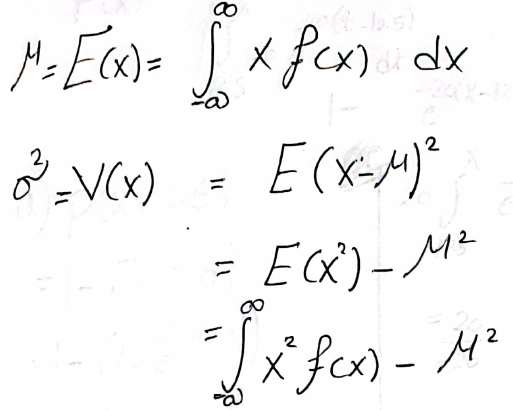 μ = E(x) = ∫_{-∞}^{∞} x f(x) dx
σ² = V(x) = E(x-μ)²
= E(x²) - μ²
= ∫_{-∞}^{∞} x² f(x) - μ²